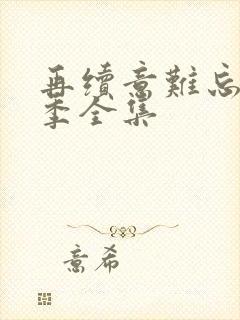 再續意難忘
季全集
意希